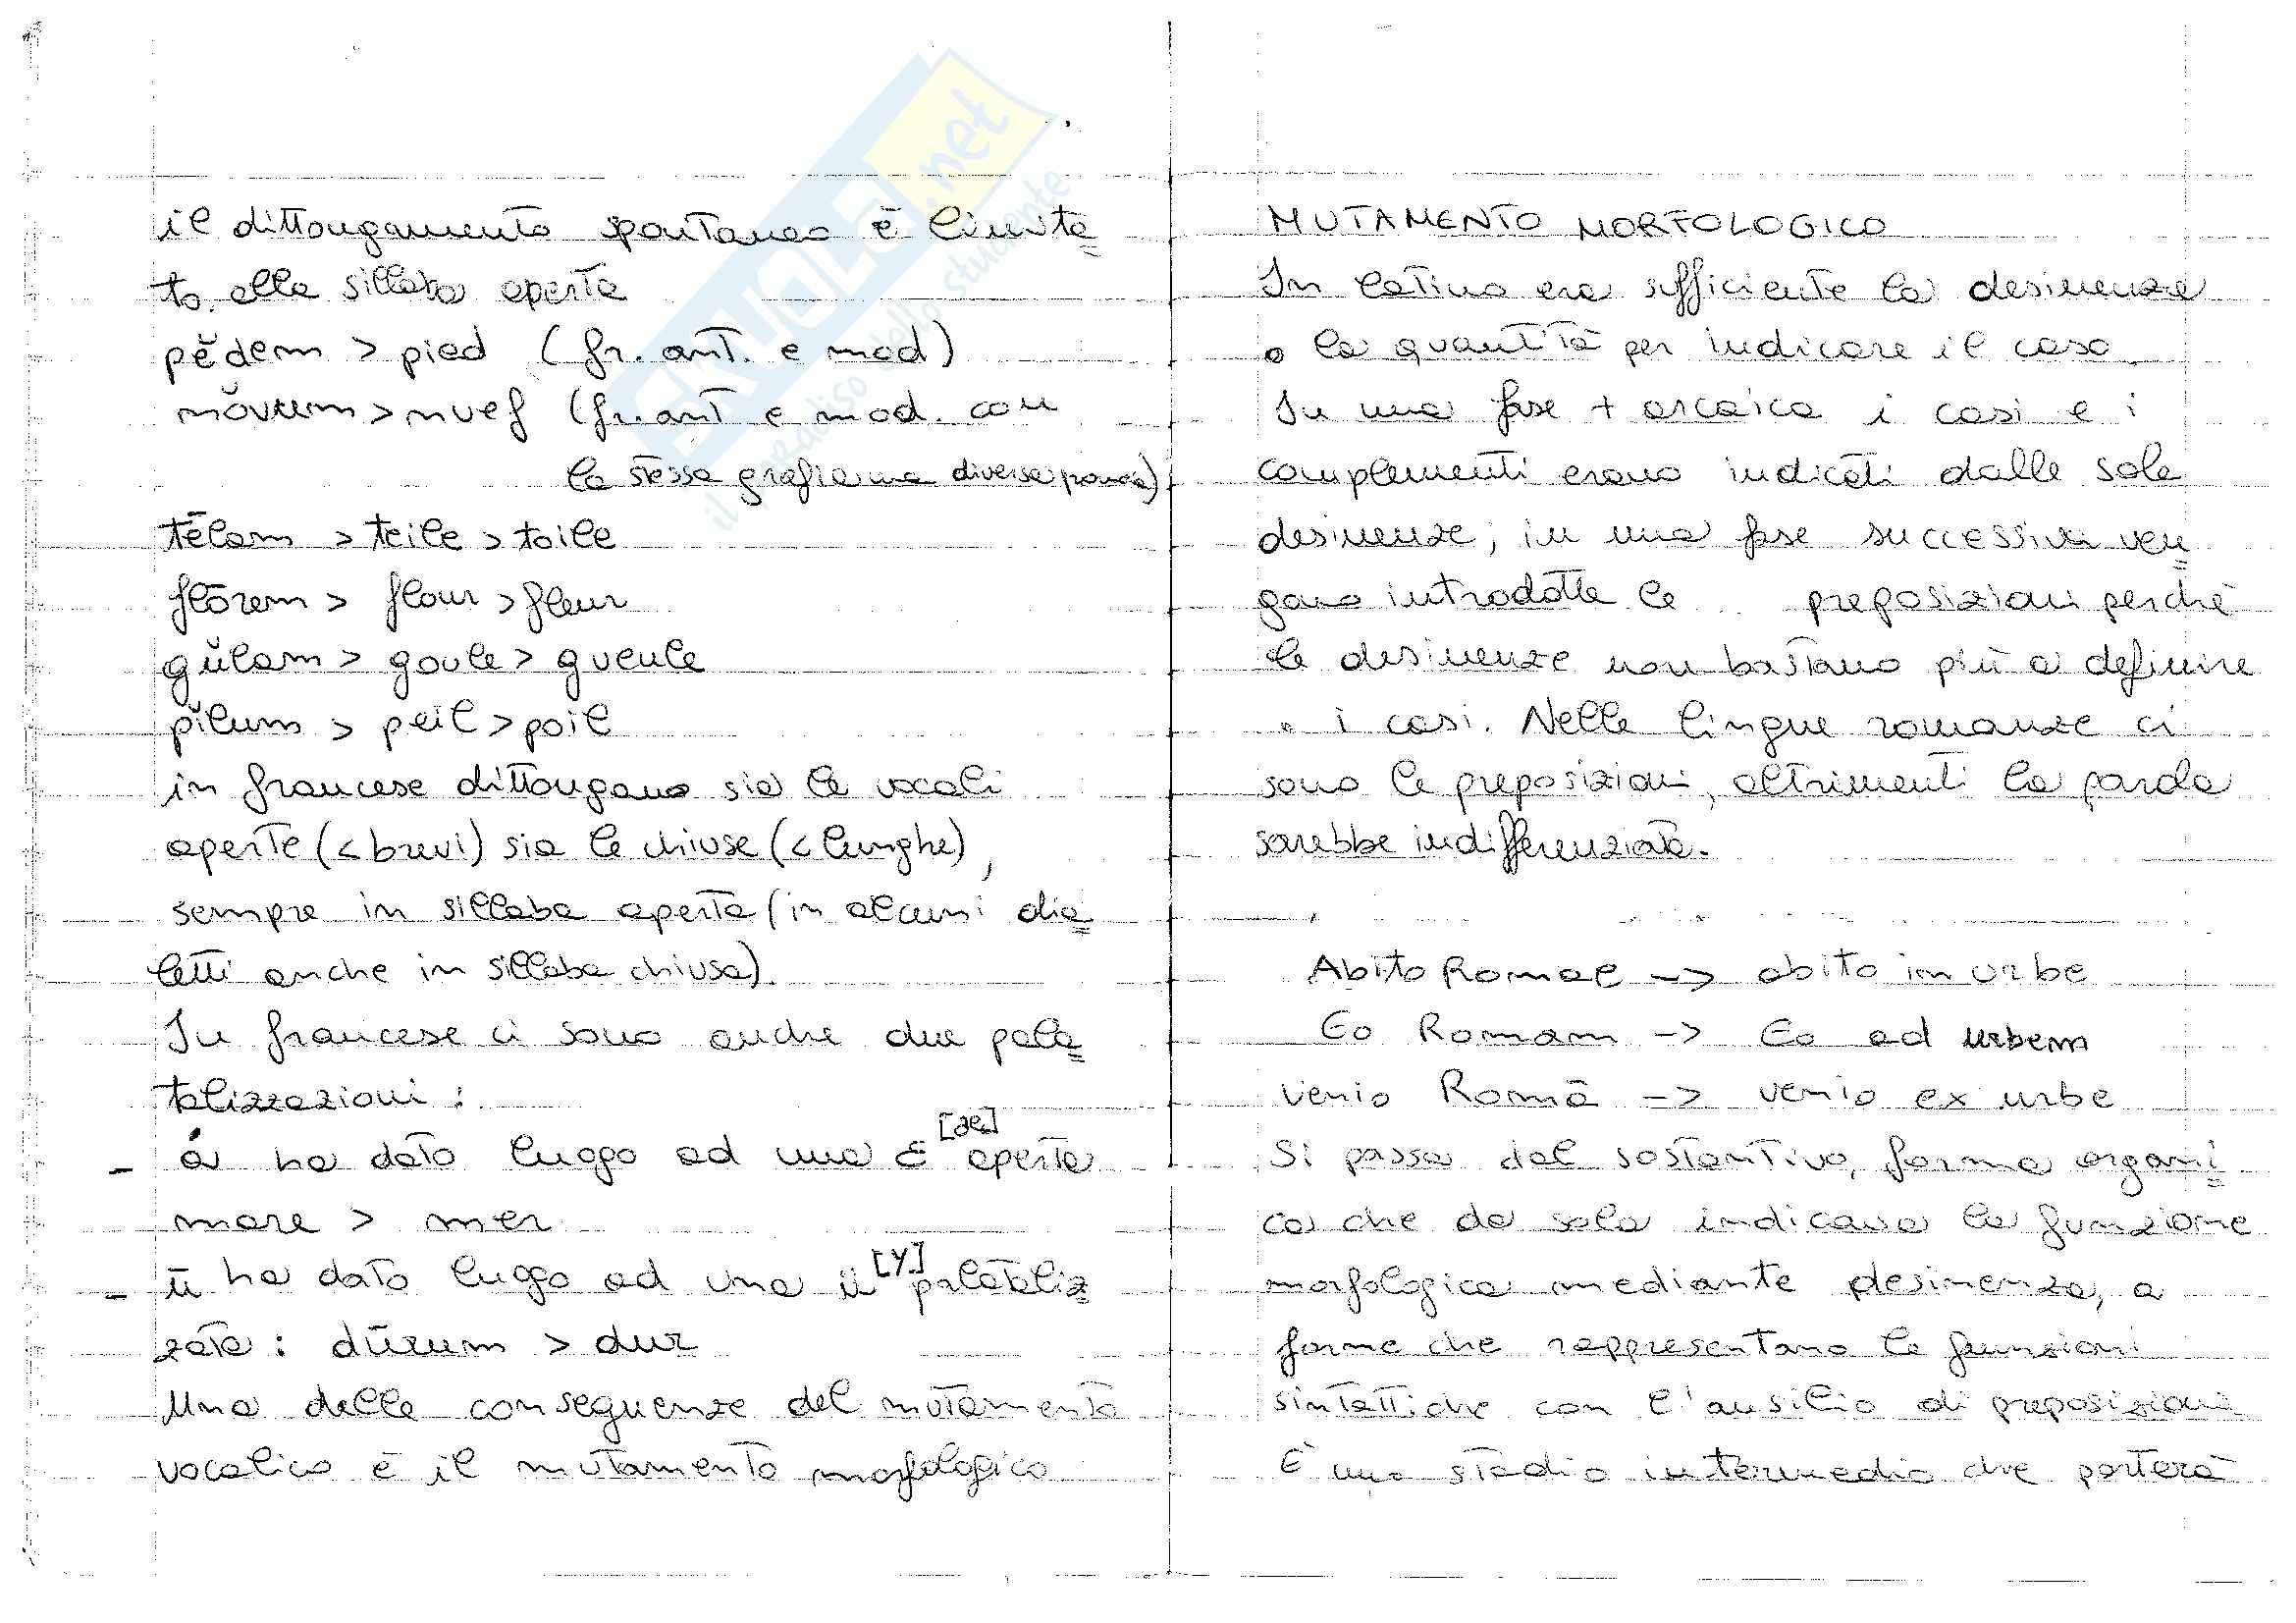 il dittongamento spontaneo è limita=
to alla sillaba aperta
pĕdem > pied (fr. ant. e mod)
nŏvum > nuef (fr. ant e mod. con
la stessa grafia ma diversa)
tēlam > teile > toile
flōrem > flour > fleur
gŭlam > goule > gueule
pĭlum > peil > poil
in francese dittongano sia le vocali
aperte (< brevi) sia le chiuse (< lunghe),
sempre in sillaba aperta (in alcuni dia=
letti anche in sillaba chiusa).
In francese ci sono anche due pala=
talizzazioni:
- á ha dato luogo ad una ε [ae] aperta
mare > mer
- ū ha dato luogo ad una ü [y] palataliz=
zata: dūrum > dur
Una delle conseguenze del mutamento
vocalico è il mutamento morfologico
MUTAMENTO MORFOLOGICO
In latino era sufficiente la desinenza
o la quantità per indicare il caso.
In una fase + arcaica i casi e i
complementi erano indicati dalle sole
desinenze; in una fase successiva ven=
gono introdotte le preposizioni perchè
le desinenze non bastano più a definire
i casi. Nelle lingue romanze ci
sono le preposizioni, altrimenti la parola
sarebbe indifferenziata.
Abito Romae -> abito in urbe
Eo Romam -> Eo ad urbem
venio Romā -> venio ex urbe
Si passa dal sostantivo, forma organi=
ca che da sola indicava la funzione
morfologica mediante desinenza, a
forme che rappresentano le funzioni
sintattiche con l'ausilio di preposizioni
È uno stadio intermedio che porterà
SKUOLA.net
il paradiso dello studente